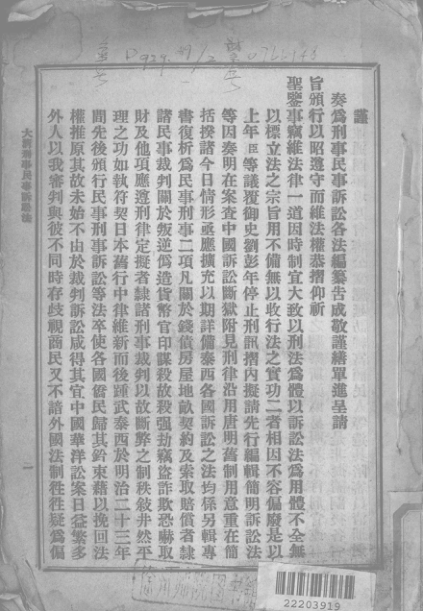 謹
奏爲刑事民事訴訟各法編纂吿成敬謹繕單進呈請
旨頒行以昭遵守而維法權恭摺仰祈
聖鑒事竊維法律一道因時制宜大致以刑法爲體以訴訟法爲用體不全無
以標立法之宗旨用不備無以收行法之實功二者相因不容偏廢是以
上年臣等議覆御史劉彭年停止刑訊摺內擬請先行編輯簡明訴訟法
等因奏明在案查中國訴訟斷獄附見刑律沿用唐明舊制用意重在簡
括揆諸今日情形亟應擴充以期詳備泰西各國訴訟之法均係另輯專
書復析爲民事刑事二項凡關於錢債房屋地畝契約及索取賠償者隸
諸民事裁判關於叛逆僞造貨幣官印謀殺故殺强劫竊盜詐欺恐嚇取
財及他項應遵刑律定擬者隸諸刑事裁判以故斷弊之制秩敍井然平
理之功如執符契日本舊行中律維新而後踵武泰西於明治二十三年
間先後頒行民事刑事訴訟等法卒使各國僑民歸其鈐束藉以挽回法
權推原其故未始不由於裁判訴訟咸得其宜中國華洋訟案日益繁多
外人以我審判與彼不同時存歧視商民又不諳外國法制往往疑爲偏
大淸刑事民事訴訟法
22203919